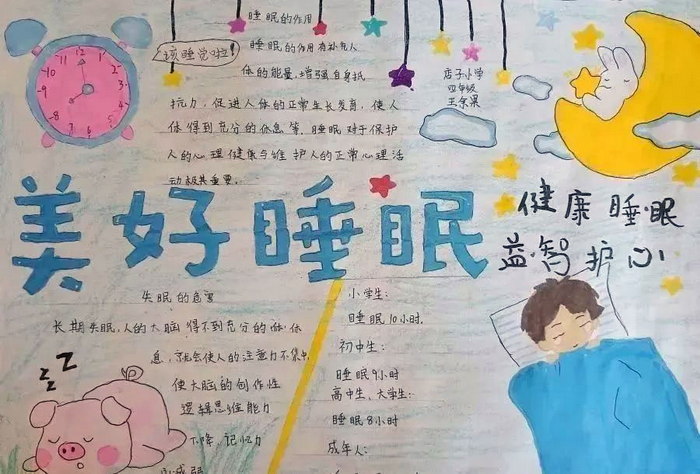 睡眠的作用
该睡觉啦!
睡眠的作用有补充人
体的能量,增强自身抵
抗力,促进人体的正常生长发育,使人
体得到充分的休息等.睡眠对于保护
人的心理健康与维护人的正常心理活
动极其重要.
店子小学
四年级
12
1
2
3
4
5
6
7
8
9
10
11
美好睡眠
健康睡眠
益智护心
失眠的危害
长期失眠,人的大脑得不到充分的休
息,就会使人的注意力不集中
使大脑的创作性
逻辑思维能力
下降,记忆力
zzz
小学生:
睡眠10小时.
初中生:
睡眠9小时
高中生、大学生:
睡眠8小时
成年人: